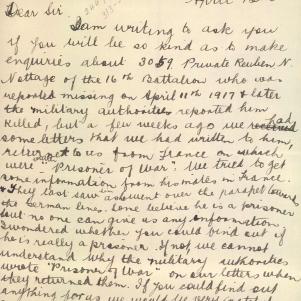 Dear Sir
I am writing to ask you
if you will be so kind as to make
enquiries about 3059 Private Reuben N.
Nottage of the 16th Battalion who was
reported missing on April 11th 1917 & later
the military authorities reported him
killed, but a few weeks ago we had
some letters that we had written to him,
returned to us from France on which
were "Prisoner of War". We tried to get
some information from his mates in France.
They last saw over the parapet towards
the German line. Some believe he is a prisoner
but no one can give us any information
I wondered whether you could find out if
he is really a prisoner. If not, we cannot
understand why the military authorities
wrote "Prisoner of War" on our letters when
they returned them. If you could find out
anything for us we would be very